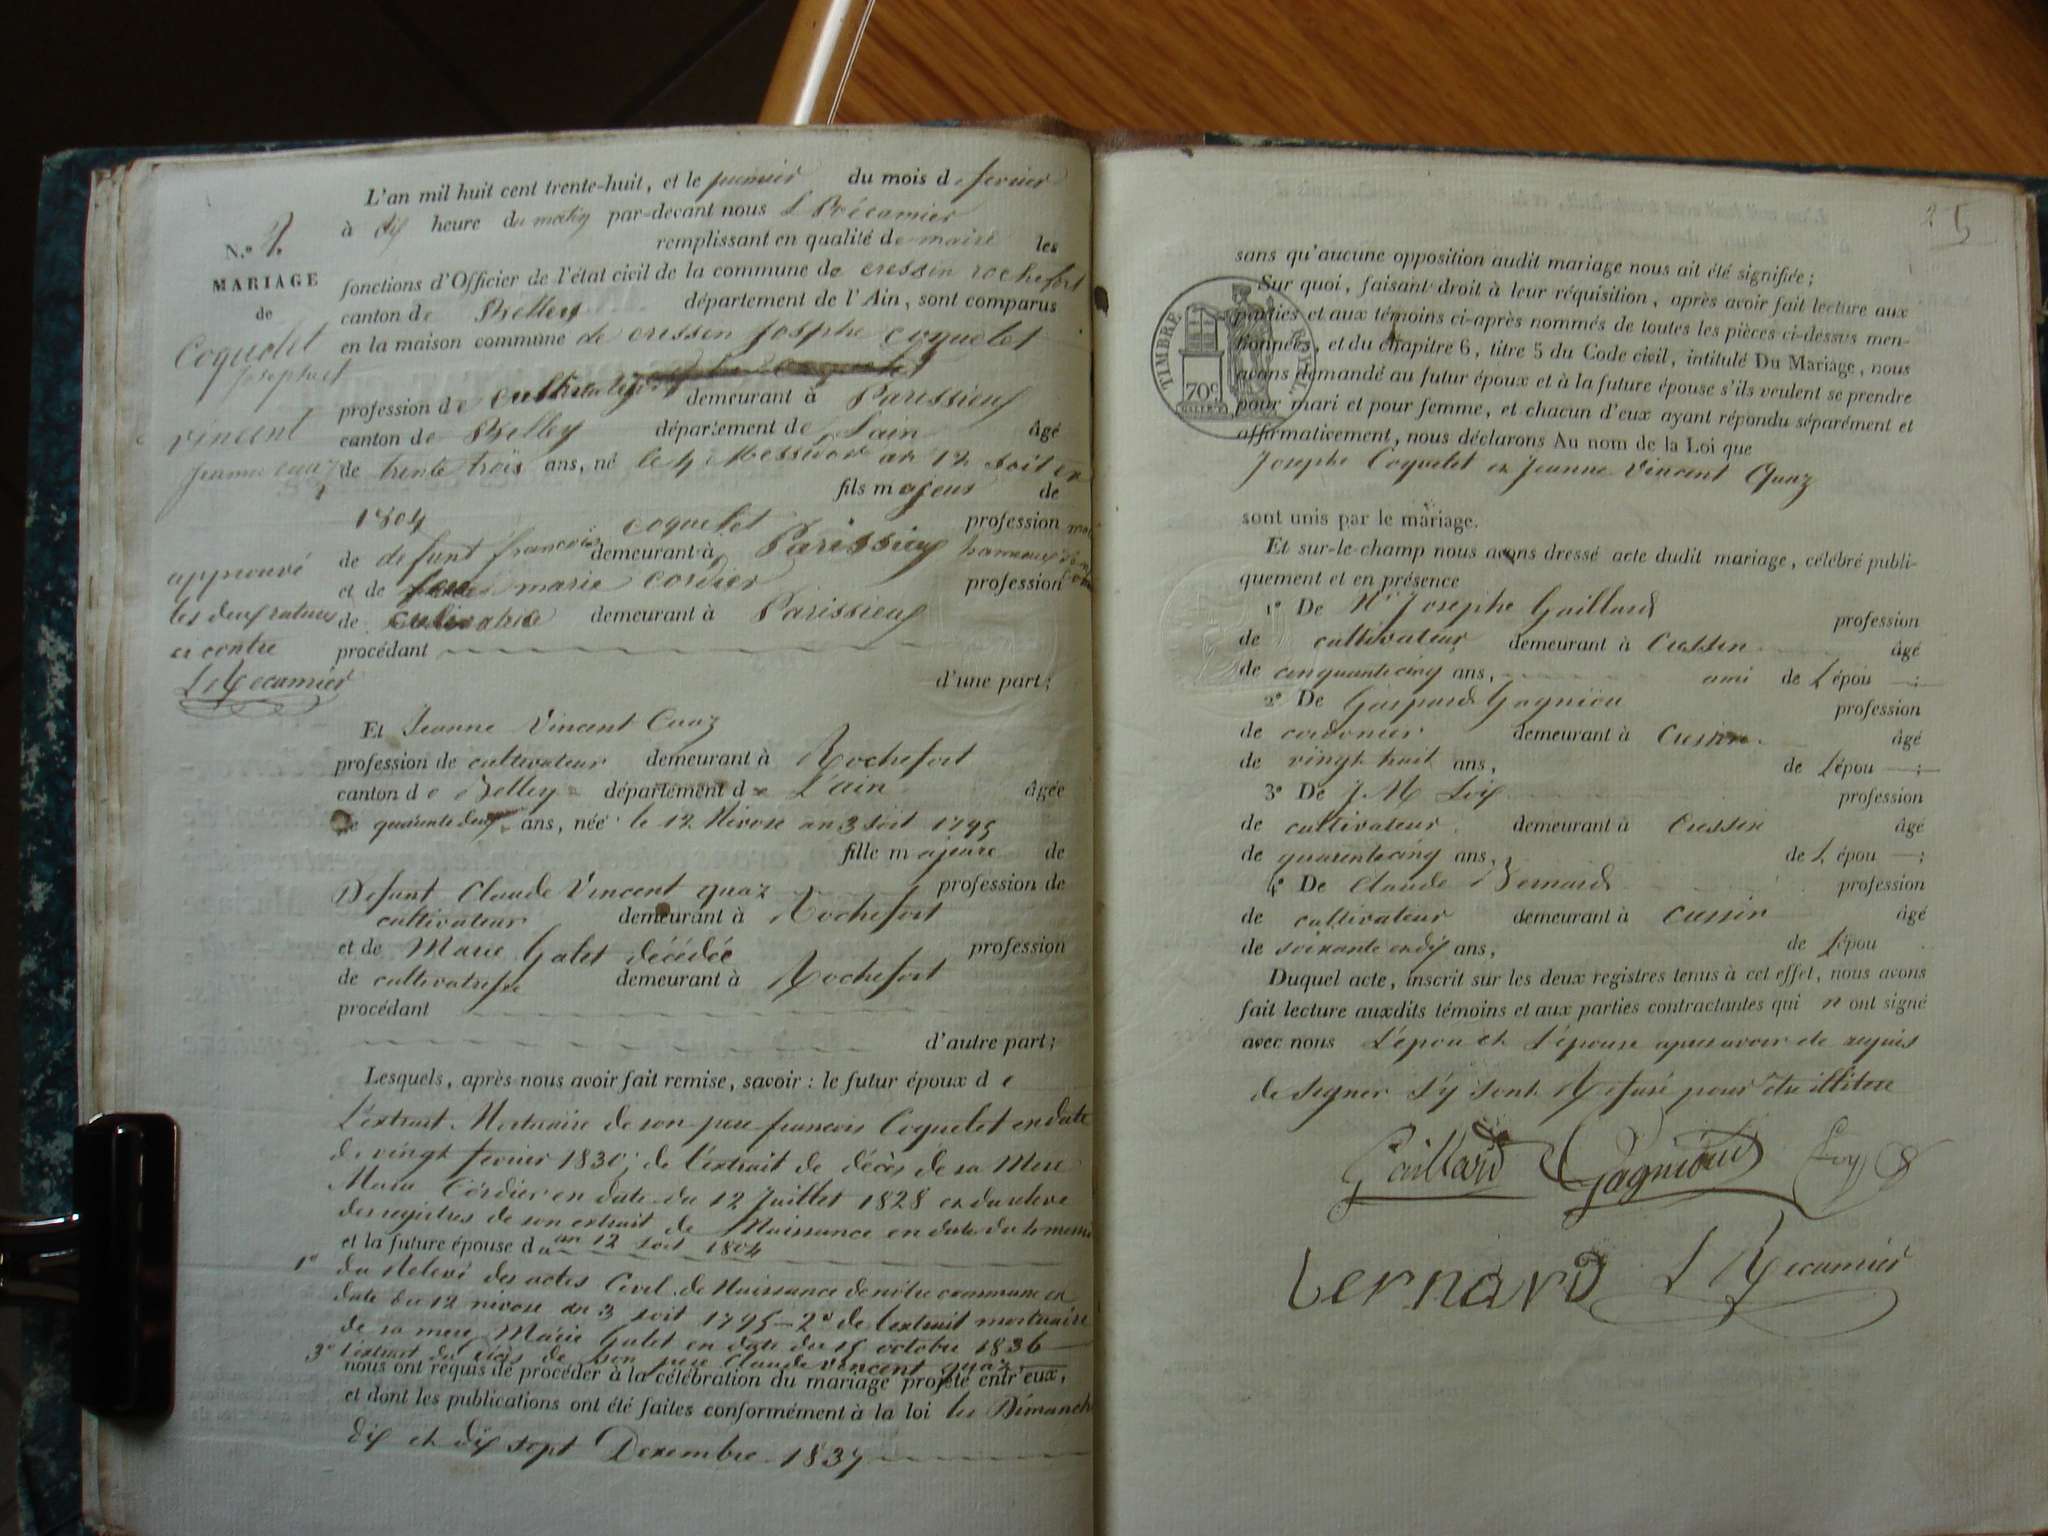 L'an mil huit cent trente-huit, et le premier du mois de fevrier
à dix heure du matin par-devant nous L Récamier
remplissant en qualité de maire les
fonctions d'Officier de l'état civil de la commune de cressin rochefort
canton de Belley département de l'Ain, sont comparus
en la maison commune de cressin Josephe Coquelet
profession de cultivateur demeurant à Parissieux
canton de Belley département de Lain âgé
de trente trois ans, né le 4 Messidor an 12 soit en
fils majeur de
1804 coquelet profession
de defunt francois demeurant à Parissieux hameau
et de marie cordier profession
de cultivatrice demeurant à Parissieux
procédant
d'une part;
N.º 2.
MARIAGE
de
Coquelet
Joseph et
vincent
Jeanne cuaz
approuvé
les deux ratures
ci contre
L Recamier
Et Jeanne Vincent Cuaz
profession de cultivateur demeurant à Rochefort
canton de Belley département de L'ain âgée
de quarante deux ans, née le 12 Nivose an 3 soit 1795
fille majeure de
Defunt Claude Vincent quaz profession de
cultivateur demeurant à Rochefort
et de Marie Galet décédée profession
de cultivatrisse demeurant à Rochefort
procédant
d'autre part;
Lesquels, après nous avoir fait remise, savoir : le futur époux de
L'extrait Mortuaire de son pere francois Coquelet en date
du vingt fevrier 1830; de l'extrait de décès de sa Mere
Marie Cordier en date du 12 Juillet 1828 et du releve
des registres de son extrait de Naissance en date du 4 messi
an 12 soit 1804
et la future épouse d
1º du Relevé des actes Civil de Naissance de nôtre commune en
date du 12 nivose an 3 soit 1795 – 2º de l'extrait mortuaire
de sa mere Marie Galet en date du 15 octobre 1836
3º l'extrait du décès de son pere Claude vincent quaz
nous ont requis de procéder à la célébration du mariage projeté entr'eux,
et dont les publications ont été faites conformément à la loi les Dimanch
dix et dix sept Decembre 1837
5
sans qu'aucune opposition audit mariage nous ait été signifiée;
Sur quoi, faisant droit à leur réquisition, après avoir fait lecture aux
parties et aux témoins ci-après nommés de toutes les pièces ci-dessus men-
tionnées, et du chapitre 6, titre 5 du Code civil, intitulé Du Mariage, nous
avons demandé au futur époux et à la future épouse s'ils veulent se prendre
pour mari et pour femme, et chacun d'eux ayant répondu séparément et
affirmativement, nous déclarons Au nom de la Loi que
TIMBRE ROYAL
70c
Josephe Coquelet et Jeanne Vincent Quaz
sont unis par le mariage.
Et sur-le-champ nous avons dressé acte dudit mariage, célébré publi-
quement et en présence
1º De Mr Josephe Gaillard profession
de cultivateur demeurant à Cressin âgé
de cinquante cinq ans, ami de L'épou ;
2º De Gaspard Gagnion profession
de cordonier demeurant à Cressin âgé
de vingt huit ans, de L'épou ;
3º De J. M Loiy profession
de cultivateur demeurant à Cressin âgé
de quarante cinq ans, de L'épou ;
4º De Claude Bernard profession
de cultivateur demeurant à cressin âgé
de soixante et dix ans, de L'épou
Duquel acte, inscrit sur les deux registres tenus à cet effet, nous avons
fait lecture auxdits témoins et aux parties contractantes qui n ont signé
avec nous L'épou et L'épouse apres avoir été requis
de signer s'y sont Refusé pour être illitere
Gaillard Gagnioud Loy
bernard L Recamier